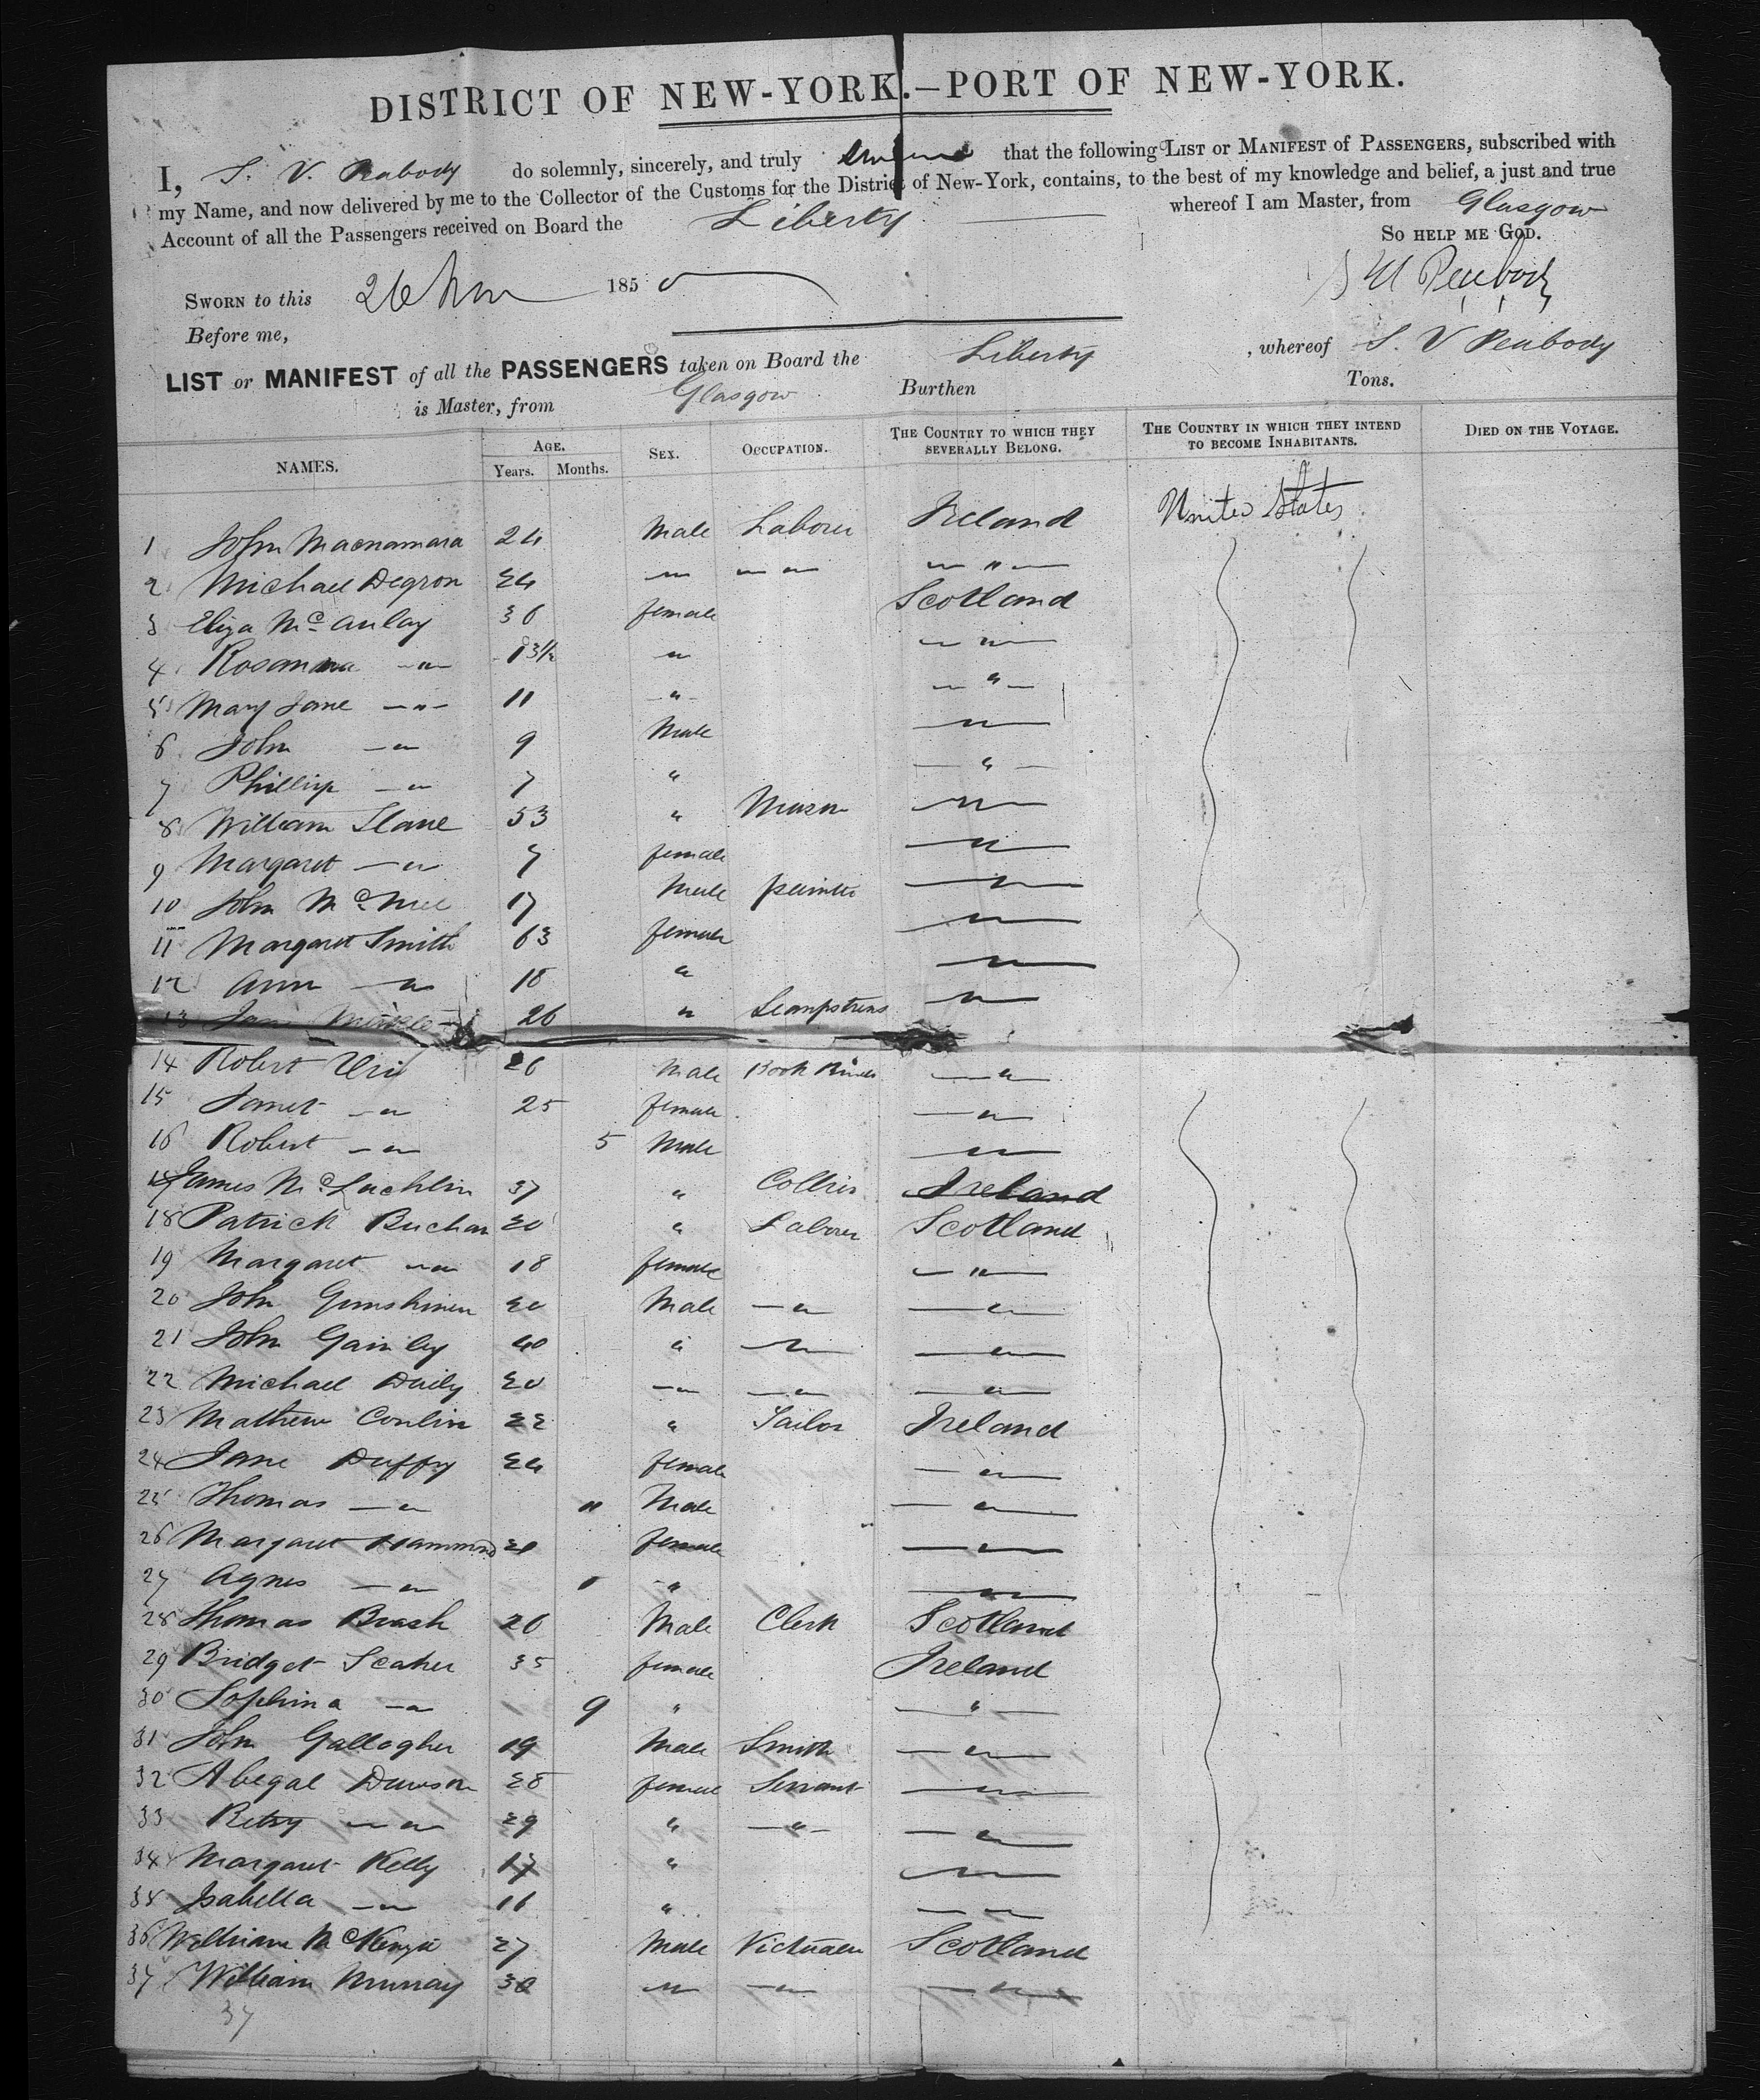 DISTRICT OF NEW-YORK.—PORT OF NEW-YORK.
I, S. V. Peabody do solemnly, sincerely, and truly that the following LIST OR MANIFEST of PASSENGERS, subscribed with
my Name, and now delivered by me to the Collector of the Customs for the District of New-York, contains, to the best of my knowledge and belief, a just and true
Account of all the Passengers received on Board the Liberty whereof I am Master, from Glasgow
SO HELP ME GOD.
Peabody
SWORN to this 26 Nov 1850
Before me,
LIST or MANIFEST of all the PASSENGERS taken on Board the Liberty , whereof S. V Peabody
is Master, from Glasgow Burthen Tons.
NAMES. AGE. Years. Months. SEX. OCCUPATION. THE COUNTRY TO WHICH THEY SEVERALLY BELONG. THE COUNTRY IN WHICH THEY INTEND TO BECOME INHABITANTS. DIED ON THE VOYAGE.
1 John Macnamara 24 Male Laborer Ireland United States
2 Michael Degron 24 — " — — " — — " —
3 Eliza Mc Aulay 36 female Scotland
4 Rosanna — " — " — " —
5 Mary Jane — " — 11 " — " —
6 John — " 9 Male — " —
7 Phillip — " 7 " — " —
8 William Slane 53 " Mason — " —
9 Margaret — " 7 female — " —
10 John Mc Nee 17 Male painter — " —
11 Margaret Smith 63 female — " —
12 Ann — " 18 " — " —
13 26 " Seampstress — " —
14 Robert 26 Male Book Binder — " —
15 Janet — " 25 female — " —
16 Robert — " 5 Male — " —
17 James Mc Lachlin 37 " Collier Ireland
18 Patrick Buchan 20 " Laborer Scotland
19 Margaret — " 18 female — " —
20 John Gunshinen 20 Male — " — " —
21 John Gainley 40 " — " — " —
22 Michael Daily 20 — " — " — " —
23 Mathew Conlin 22 " Tailor Ireland
24 Jane Duffy 24 female — " —
25 Thomas — " 11 Male — " —
26 Margaret Hammond female — " —
27 Agnes — " " — " —
28 Thomas Brash 26 Male Clerk Scotland
29 Bridget Scaher 35 female Ireland
30 Sophina — " 9 " — " —
31 John Gallogher 19 Male Smith — " —
32 Abegal Dawson 28 female Servant — " —
33 Betsy — " 29 " — " — — " —
34 Margaret Kelly " — " —
35 Isabella — " 16 " — " —
36 William Mc Kenzie 27 Male Victualer Scotland
37 William Murray 30 " — " — " —
37